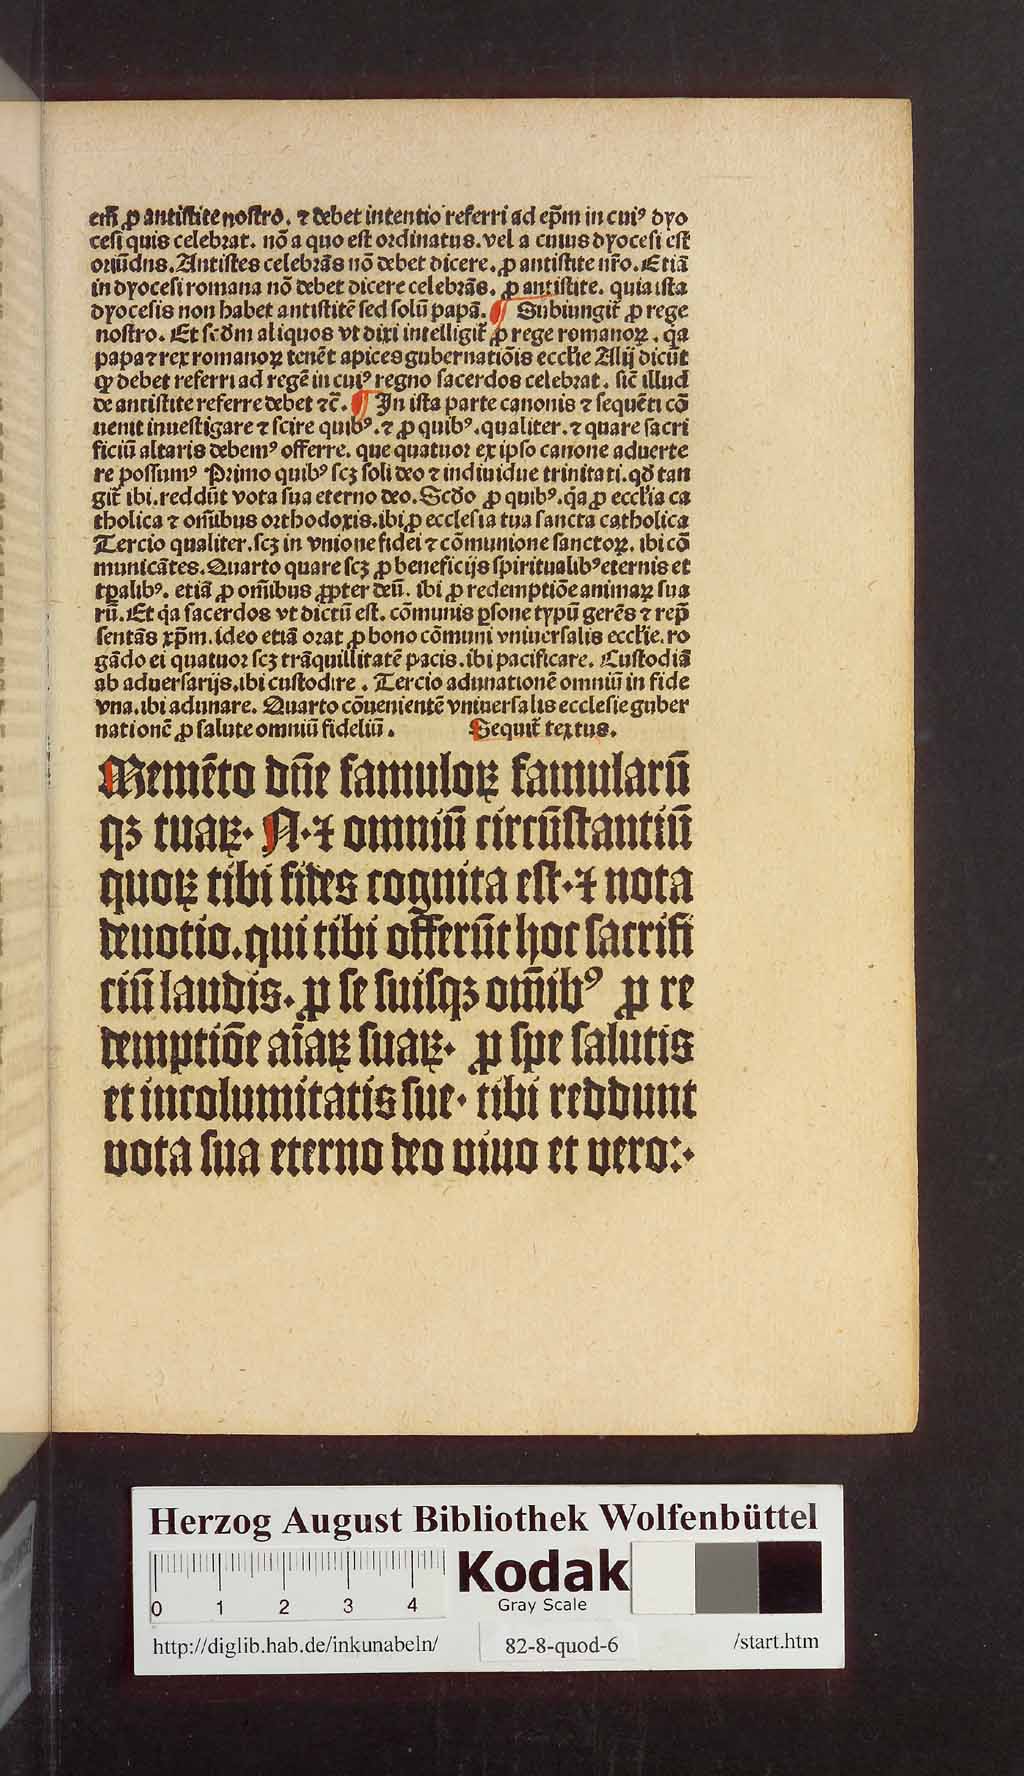 em̃ ꝓ antistite nostro. ⁊ debet intentio referri ad ep̄m in cuiꝰ dyo
cesi quis celebrat. nō a quo est ordinatus. vel a cuius dyocesi est
oriūdus. Antistes celebrās nō debet dicere. ꝓ antistite nr̄o. Etiā
in dyocesi romana nō debet dicere celebrās. ꝓ antistite. quia ista
dyocesis non habet antistitē sed solū papā. ¶ Subiungit̄ ꝓ rege
nostro. Et scd̄m aliquos vt dixi intelligit̄ ꝓ rege romanoꝝ. q̄a
papa ⁊ rex romanoꝝ tenēt apices gubernatiōis eccl̄ie Alij dicūt
ꝙ debet referri ad regē in cuiꝰ regno sacerdos celebrat. sic̄ illud
de antistite referre debet ⁊c̄. ¶ In ista parte canonis ⁊ sequēti cō
uenit inuestigare ⁊ scire quibꝰ. ⁊ ꝓ quibꝰ. qualiter. ⁊ quare sacri
ficiū altaris debemꝰ offerre. que quatuor ex ipso canone aduerte
re possumꝰ Primo quibꝰ scꝫ soli deo ⁊ indiuidue trinitati. qd̄ tan
git̄ ibi. reddūt vota sua eterno deo. Scd̄o ꝓ quibꝰ. q̄a ꝓ eccl̄ia ca
tholica ⁊ om̄ibus orthodoxis. ibi ꝓ ecclesia tua sancta catholica
Tercio qualiter. scꝫ in vnione fidei ⁊ cōmunione sanctoꝝ. ibi cō
municātes. Quarto quare scꝫ ꝓ beneficijs spiritualibꝰ eternis et
tꝑalibꝰ. etiā ꝓ om̄ibus ꝓpter deū. ibi ꝓ redemptiōe animaꝝ sua
rū. Et q̄a sacerdos vt dictū est. cōmunis ꝑsone typū gerēs ⁊ rep̄
sentās xp̄m. ideo etiā orat ꝓ bono cōmuni vniuersalis eccl̄ie. ro
gādo ei quatuor scꝫ trāquillitatē pacis. ibi pacificare. Custodiā
ab aduersarijs. ibi custodire. Tercio adunationē omniū in fide
vna. ibi adunare. Quarto cōuenientē vniuersalis ecclesie guber
nationē ꝓ salute omniū fideliū. Sequit̄ textus.
Memēto dn̄e famuloꝝ famularū
qꝫ tuaꝝ. N. ⁊ omniū circūstantiū
quoꝝ tibi fides cognita est. ⁊ nota
deuotio. qui tibi offerūt hoc sacrifi
ciū laudis. ꝓ se suisqꝫ om̄ibꝰ ꝓ re
demptiōe aīaꝝ suaꝝ. ꝓ spe salutis
et incolumitatis sue. tibi reddunt
vota sua eterno deo viuo et vero:.
Herzog August Bibliothek Wolfenbüttel
Kodak
Gray Scale
0 1 2 3 4
http://diglib.hab.de/inkunabeln/ 82-8-quod-6 /start.htm